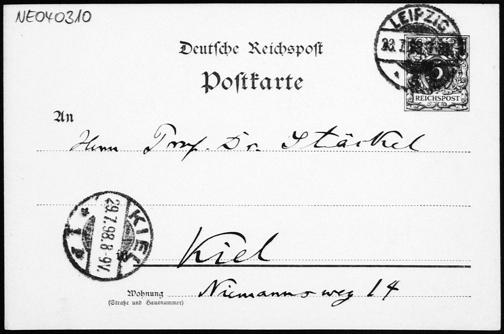 NE040310
LEIPZIG
Deutsche Reichspost
Postkarte
REICHSPOST
An
Herrn Prof. Dr. Stäckel
KIEL
29.7.98.8-9V.
* 1 *
Kiel
Wohnung Niemannsweg 14
(Straße und Hausnummer)